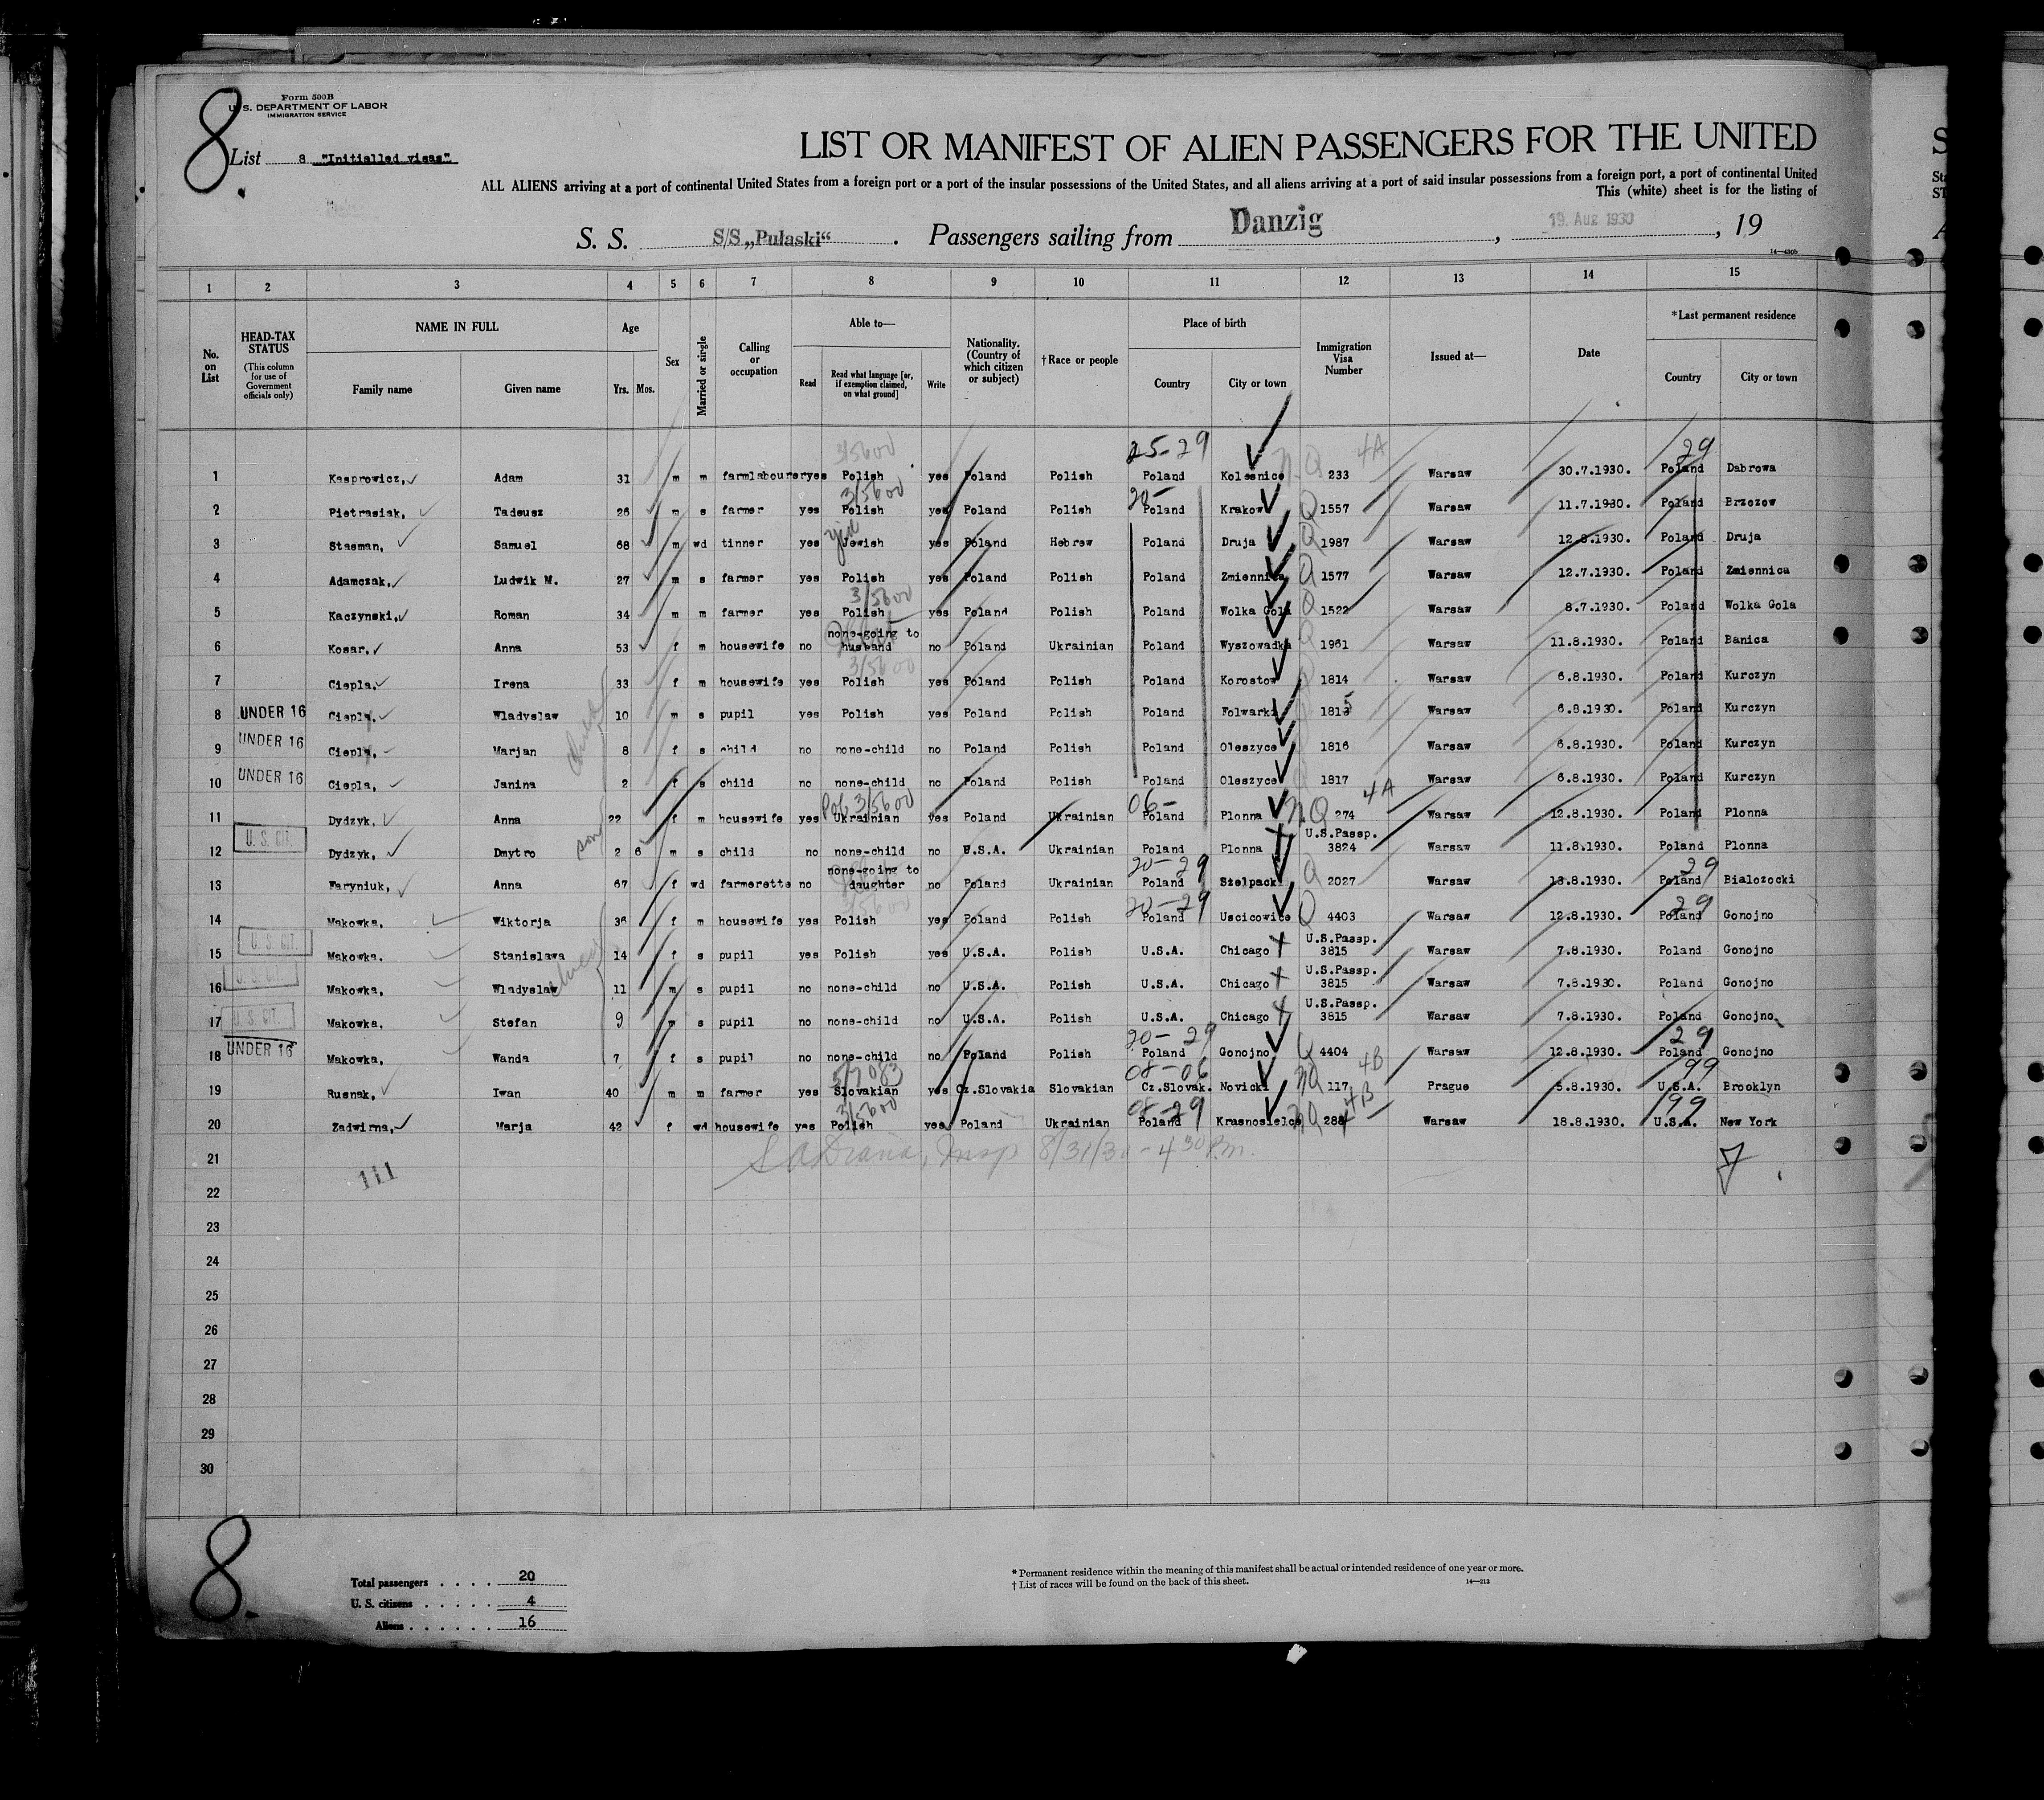 Form 500B
U. S. DEPARTMENT OF LABOR
IMMIGRATION SERVICE
8
List 8 "Initialled visas"
LIST OR MANIFEST OF ALIEN PASSENGERS FOR THE UNITED
ALL ALIENS arriving at a port of continental United States from a foreign port or a port of the insular possessions of the United States, and all aliens arriving at a port of said insular possessions from a foreign port, a port of continental United
This (white) sheet is for the listing of
S. S. S/S „Pułaski“ . Passengers sailing from Danzig , 19. Aug 1930 , 19
14—430b
1 2 3 4 5 6 7 8 9 10 11 12 13 14 15
No. on List HEAD-TAX STATUS (This column for use of Government officials only) NAME IN FULL Family name Given name Age Yrs. Mos. Sex Married or single Calling or occupation Able to— Read Read what language [or, if exemption claimed, on what ground] Write Nationality. (Country of which citizen or subject) †Race or people Place of birth Country City or town Immigration Visa Number Issued at— Date *Last permanent residence Country City or town
3/5600 25-29 4A 29
1 Kasprowicz, Adam 31 m m farmlabourer yes Polish yes Poland Polish Poland Kolesnice N.Q 233 Warsaw 30.7.1930. Poland Dabrowa
3/5600 20-
2 Pietrasiak, Tadeusz 26 m s farmer yes Polish yes Poland Polish Poland Krakow Q 1557 Warsaw 11.7.1930. Poland Brzozow
3 Stasman, Samuel 68 m wd tinner yes Jewish yes Poland Hebrew Poland Druja Q 1987 Warsaw 12.8.1930. Poland Druja
4 Adamczak, Ludwik M. 27 m s farmer yes Polish yes Poland Polish Poland Zmiennica Q 1577 Warsaw 12.7.1930. Poland Zmiennica
3/5600
5 Kaczynski, Roman 34 m m farmer yes Polish yes Poland Polish Poland Wolka Gola Q 1522 Warsaw 8.7.1930. Poland Wolka Gola
6 Kosar, Anna 53 f m housewife no none-going to husband no Poland Ukrainian Poland Wyszowadka Q 1961 Warsaw 11.8.1930. Poland Banica
3/5600
7 Ciepla, Irena 33 f m housewife yes Polish yes Poland Polish Poland Korostow 1814 Warsaw 6.8.1930. Poland Kurczyn
8 UNDER 16 Ciepla, Wladyslaw 10 m s pupil yes Polish yes Poland Polish Poland Folwarki 1815 Warsaw 6.8.1930. Poland Kurczyn
9 UNDER 16 Ciepla, Marjan 8 f s child no none-child no Poland Polish Poland Oleszyce 1816 Warsaw 6.8.1930. Poland Kurczyn
10 UNDER 16 Ciepla, Janina 2 f s child no none-child no Poland Polish Poland Oleszyce 1817 Warsaw 6.8.1930. Poland Kurczyn
Pol 3/5600 06- 4A
11 Dydzyk, Anna 22 f m housewife yes Ukrainian yes Poland Ukrainian Poland Plonna N.Q 274 Warsaw 12.8.1930. Poland Plonna
12 U. S. CIT. Dydzyk, Dmytro 2 6 m s child no none-child no U.S.A. Ukrainian Poland Plonna U.S.Passp. 3824 Warsaw 11.8.1930. Poland Plonna
20-29 29
13 Faryniuk, Anna 67 f wd farmerette no none-going to daughter no Poland Ukrainian Poland Szelpacki Q 2027 Warsaw 13.8.1930. Poland Bialozocki
3/5600 20-29 29
14 Makowka, Wiktorja 36 f m housewife yes Polish yes Poland Polish Poland Uscicowice Q 4403 Warsaw 12.8.1930. Poland Gonojno
15 U. S. CIT. Makowka, Stanislawa 14 f s pupil yes Polish yes U.S.A. Polish U.S.A. Chicago U.S.Passp. 3815 Warsaw 7.8.1930. Poland Gonojno
16 U. S. CIT. Makowka, Wladyslaw 11 m s pupil no none-child no U.S.A. Polish U.S.A. Chicago U.S.Passp. 3815 Warsaw 7.8.1930. Poland Gonojno
17 U. S. CIT. Makowka, Stefan 9 m s pupil no none-child no U.S.A. Polish U.S.A. Chicago U.S.Passp. 3815 Warsaw 7.8.1930. Poland Gonojno
20-29 29
18 UNDER 16 Makowka, Wanda 7 f s pupil no none-child no Poland Polish Poland Gonojno Q 4404 Warsaw 12.8.1930. Poland Gonojno
08-06 4B 99
19 Rusnak, Iwan 40 m m farmer yes Slovakian yes Cz.Slovakia Slovakian Cz.Slovak. Novicki NQ 117 Prague 5.8.1930. U.S.A. Brooklyn
3/5600 08-29 4B 99
20 Zadwirna, Marja 42 f wd housewife yes Polish yes Poland Ukrainian Poland Krasnosielce NQ 288 Warsaw 18.8.1930. U.S.A. New York
21 Insp 8/31/30 - 4 30 P.m.
22 111
23
24
25
26
27
28
29
30
8
Total passengers . . . . 20
U. S. citizens . . . . . 4
Aliens . . . . . . 16
* Permanent residence within the meaning of this manifest shall be actual or intended residence of one year or more.
† List of races will be found on the back of this sheet.
14—213